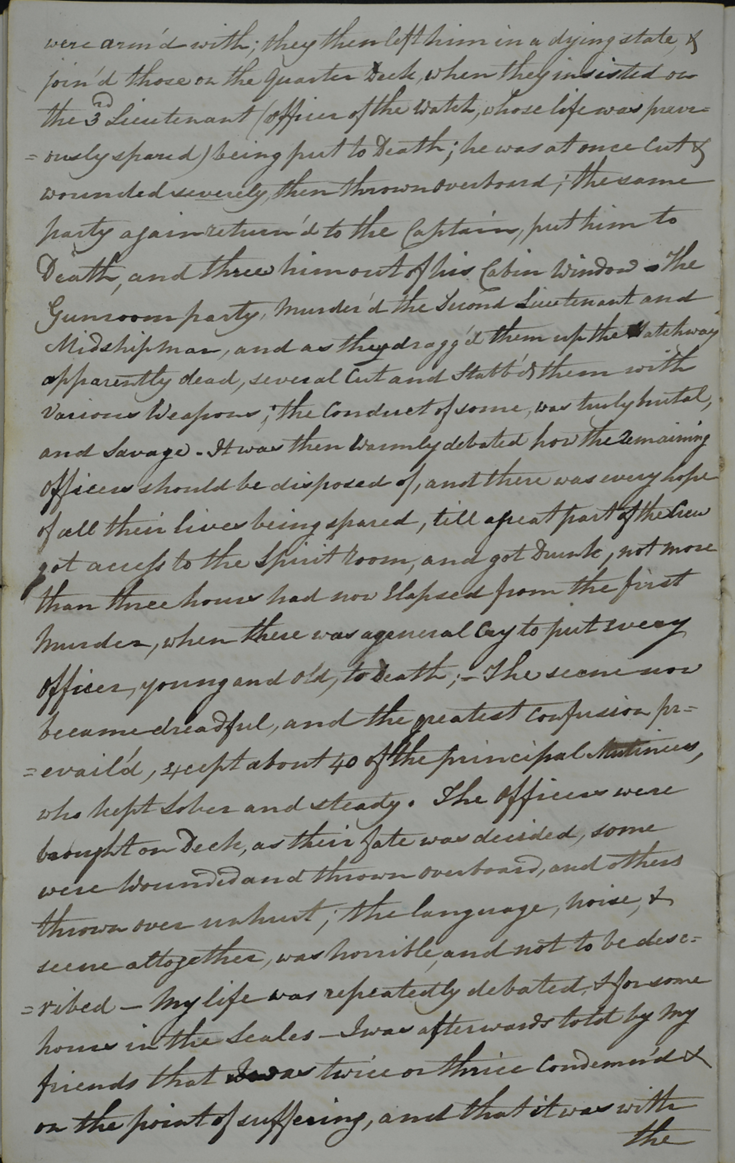 were arm'd with; they then left him in a dying state, &
join'd those on the Quarter Deck, when they insisted on
the 3rd Lieutenant (officer of the Watch, whose life was previ=
=ously spared) being put to Death; he was at once Cut &
wounded severely, then thrown overboard; the same
party again return'd to the Captain, put him to
Death, and threw him out of his Cabin Window – The
Gunroom party, Murder'd the Second Lieutenant and
Midshipman, and as they dragg'd them up the Hatchway
apparently dead, several Cut and Stabb'd them with
Various Weapons; the Conduct of some, was truly brutal,
and Savage. It was then Warmly debated how the Remaining
Officers should be disposed of, and there was every hope
of all their lives being spared, till a great part of the Crew
got access to the Spirit Room, and got Drunk, not more
than three hours had now Elapsed from the first
Murder, when there was a general Cry to put every
Officer, young and old, to Death; – The scene now
became dreadful, and the greatest Confusion pr=
=evail'd, except about 40 of the principal Mutineers,
who kept Sober and steady. The Officers were
brought on Deck, as their fate was decided, some
were Wounded and thrown overboard, and others
thrown over unhurt; the language, noise, &
scene altogether, was horrible, and not to be desc=
=ribed – My life was repeatedly debated, & for some
hours in the Scales – I was afterwards told by my
friends that I was twice or thrice Condemn'd &
on the point of suffering, and that it was with
the